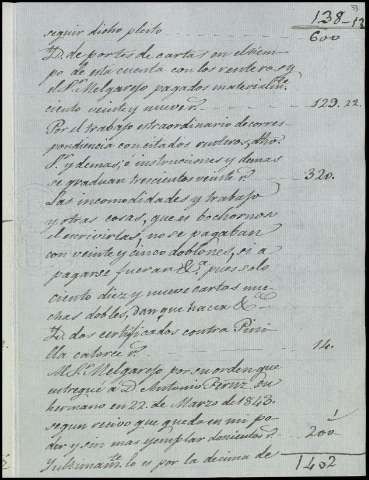 138-12
seguir dicho pleito 600
Yd. de portes de cartas en el tiem-
po de esta cuenta con los renteros y
el Sr. Melgarejo pagados materialmte.
ciento veinte y nueve r. 129.22.
Por el trabajo estraordinario de corres-
pondencia con citados renteros, dho
Sr. y demas; é instrucciones y demas
se graduan trescientos veinte r. 320.
Las incomodidades y trabajo
y otras cosas, que es bochornoso
el escrivirlas, no se pagaban
con veinte y cinco doblones, si a
pagarse fueran &a. pues solo
ciento diez y nueve cartas mu-
chas dobles, dan que hacer &a.
Yd. dos certificados contra Pini-
lla catorce r. 14.
Al Sr. Melgarejo por su orden que
entregué a D. Antonio Perez su
hermano en 22. de Marzo de 1843.
segun recivo que queda en mi po-
der y sin mas ejemplar doscientos r. 200
Y ultimamte. lo es por la decima de 1402